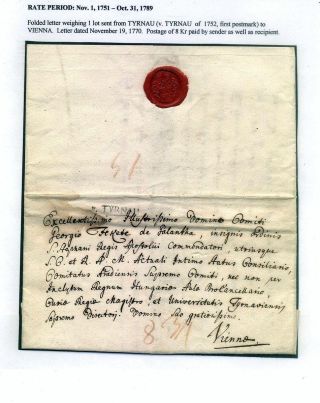 RATE PERIOD: Nov. 1, 1751 – Oct. 31, 1789
Folded letter weighing 1 lot sent from TYRNAU (v. TYRNAU of 1752, first postmark) to
VIENNA. Letter dated November 19, 1770. Postage of 8 Kr paid by sender as well as recipient.
v. TYRNAU
Excellentissimo Illustrissimo Domino Comiti
Georgio Fekete de Galantha, insignis Ordinis
S. Stephani Regis Apostolici Commendatori, utriusque
S. C. et R. A. M. Actuali Intimo Status Consiliario,
Comitatus Aradiensis Supremo Comiti, nec non per
Inclytum Regnum Hungariae Aulo Procancellario,
Curiae Regiae Magistro et Universitatis Tyrnaviensis
Supremo Directori. Domino suo gratiosissimo
8
Vienne